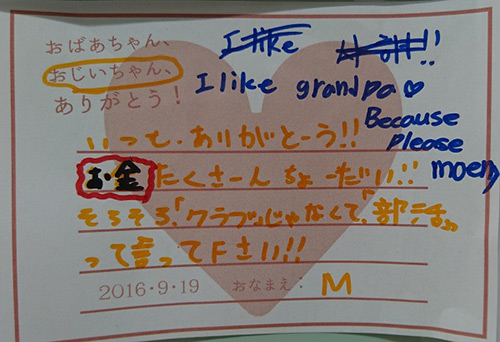 おばあちゃん、
おじいちゃん、
ありがとう！
I like
I like grandpa♡
Because
please
moeny
いつも、ありがとーう!!
お金たくさーんちょーだい!!
そろそろ、「クラブ」じゃなくて、「部活」
って言って下さい!!
2016・9・19 おなまえ： M